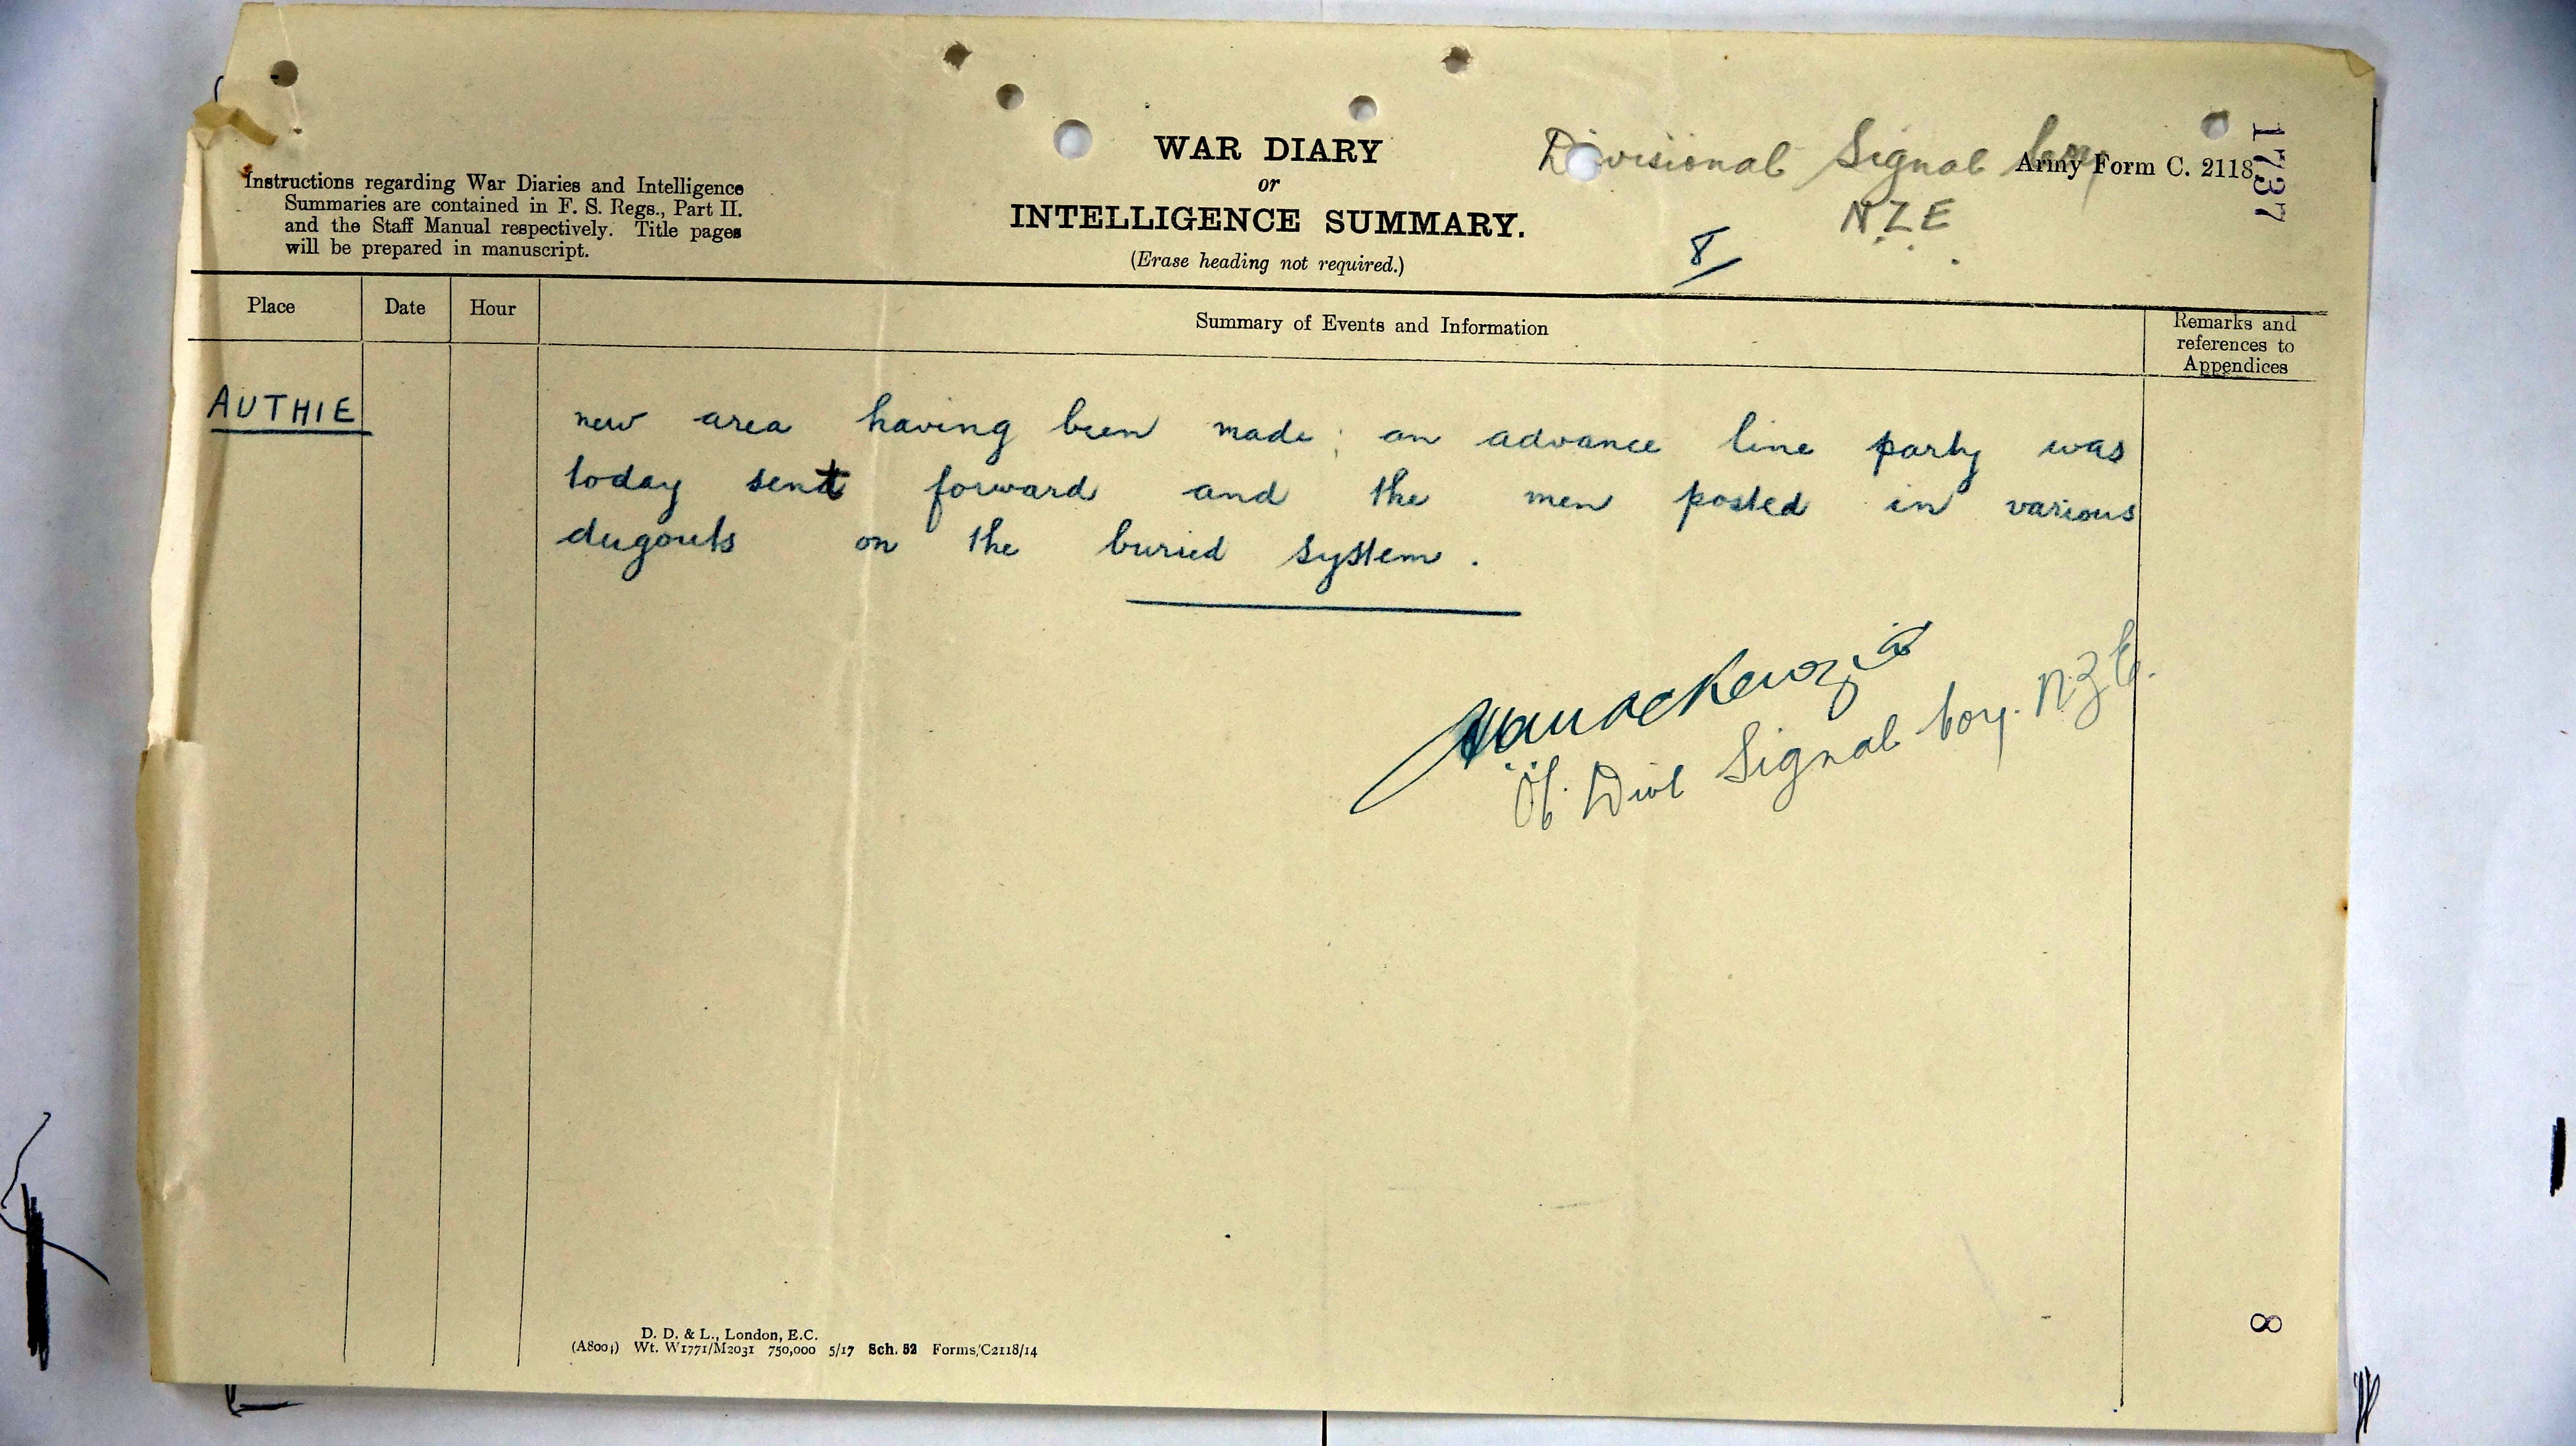 Instructions regarding War Diaries and Intelligence
Summaries are contained in F. S. Regs., Part II.
and the Staff Manual respectively. Title pages
will be prepared in manuscript.
WAR DIARY
or
INTELLIGENCE SUMMARY.
(Erase heading not required.)
Divisional Signal Coy
Army Form C. 2118.
N.Z.E.
8
1737
Place
Date
Hour
Summary of Events and Information
Remarks and
references to
Appendices
AUTHIE
new area having been made; an advance line party was
today sent forward and the men posted in various
dugouts on the buried system.
MacKenzie
Divl Signal Coy. N.Z.E.
D. D. & L., London, E.C.
(A8001) Wt. W1771/M2031 750,000 5/17 Sch. 52 Forms/C2118/14
8